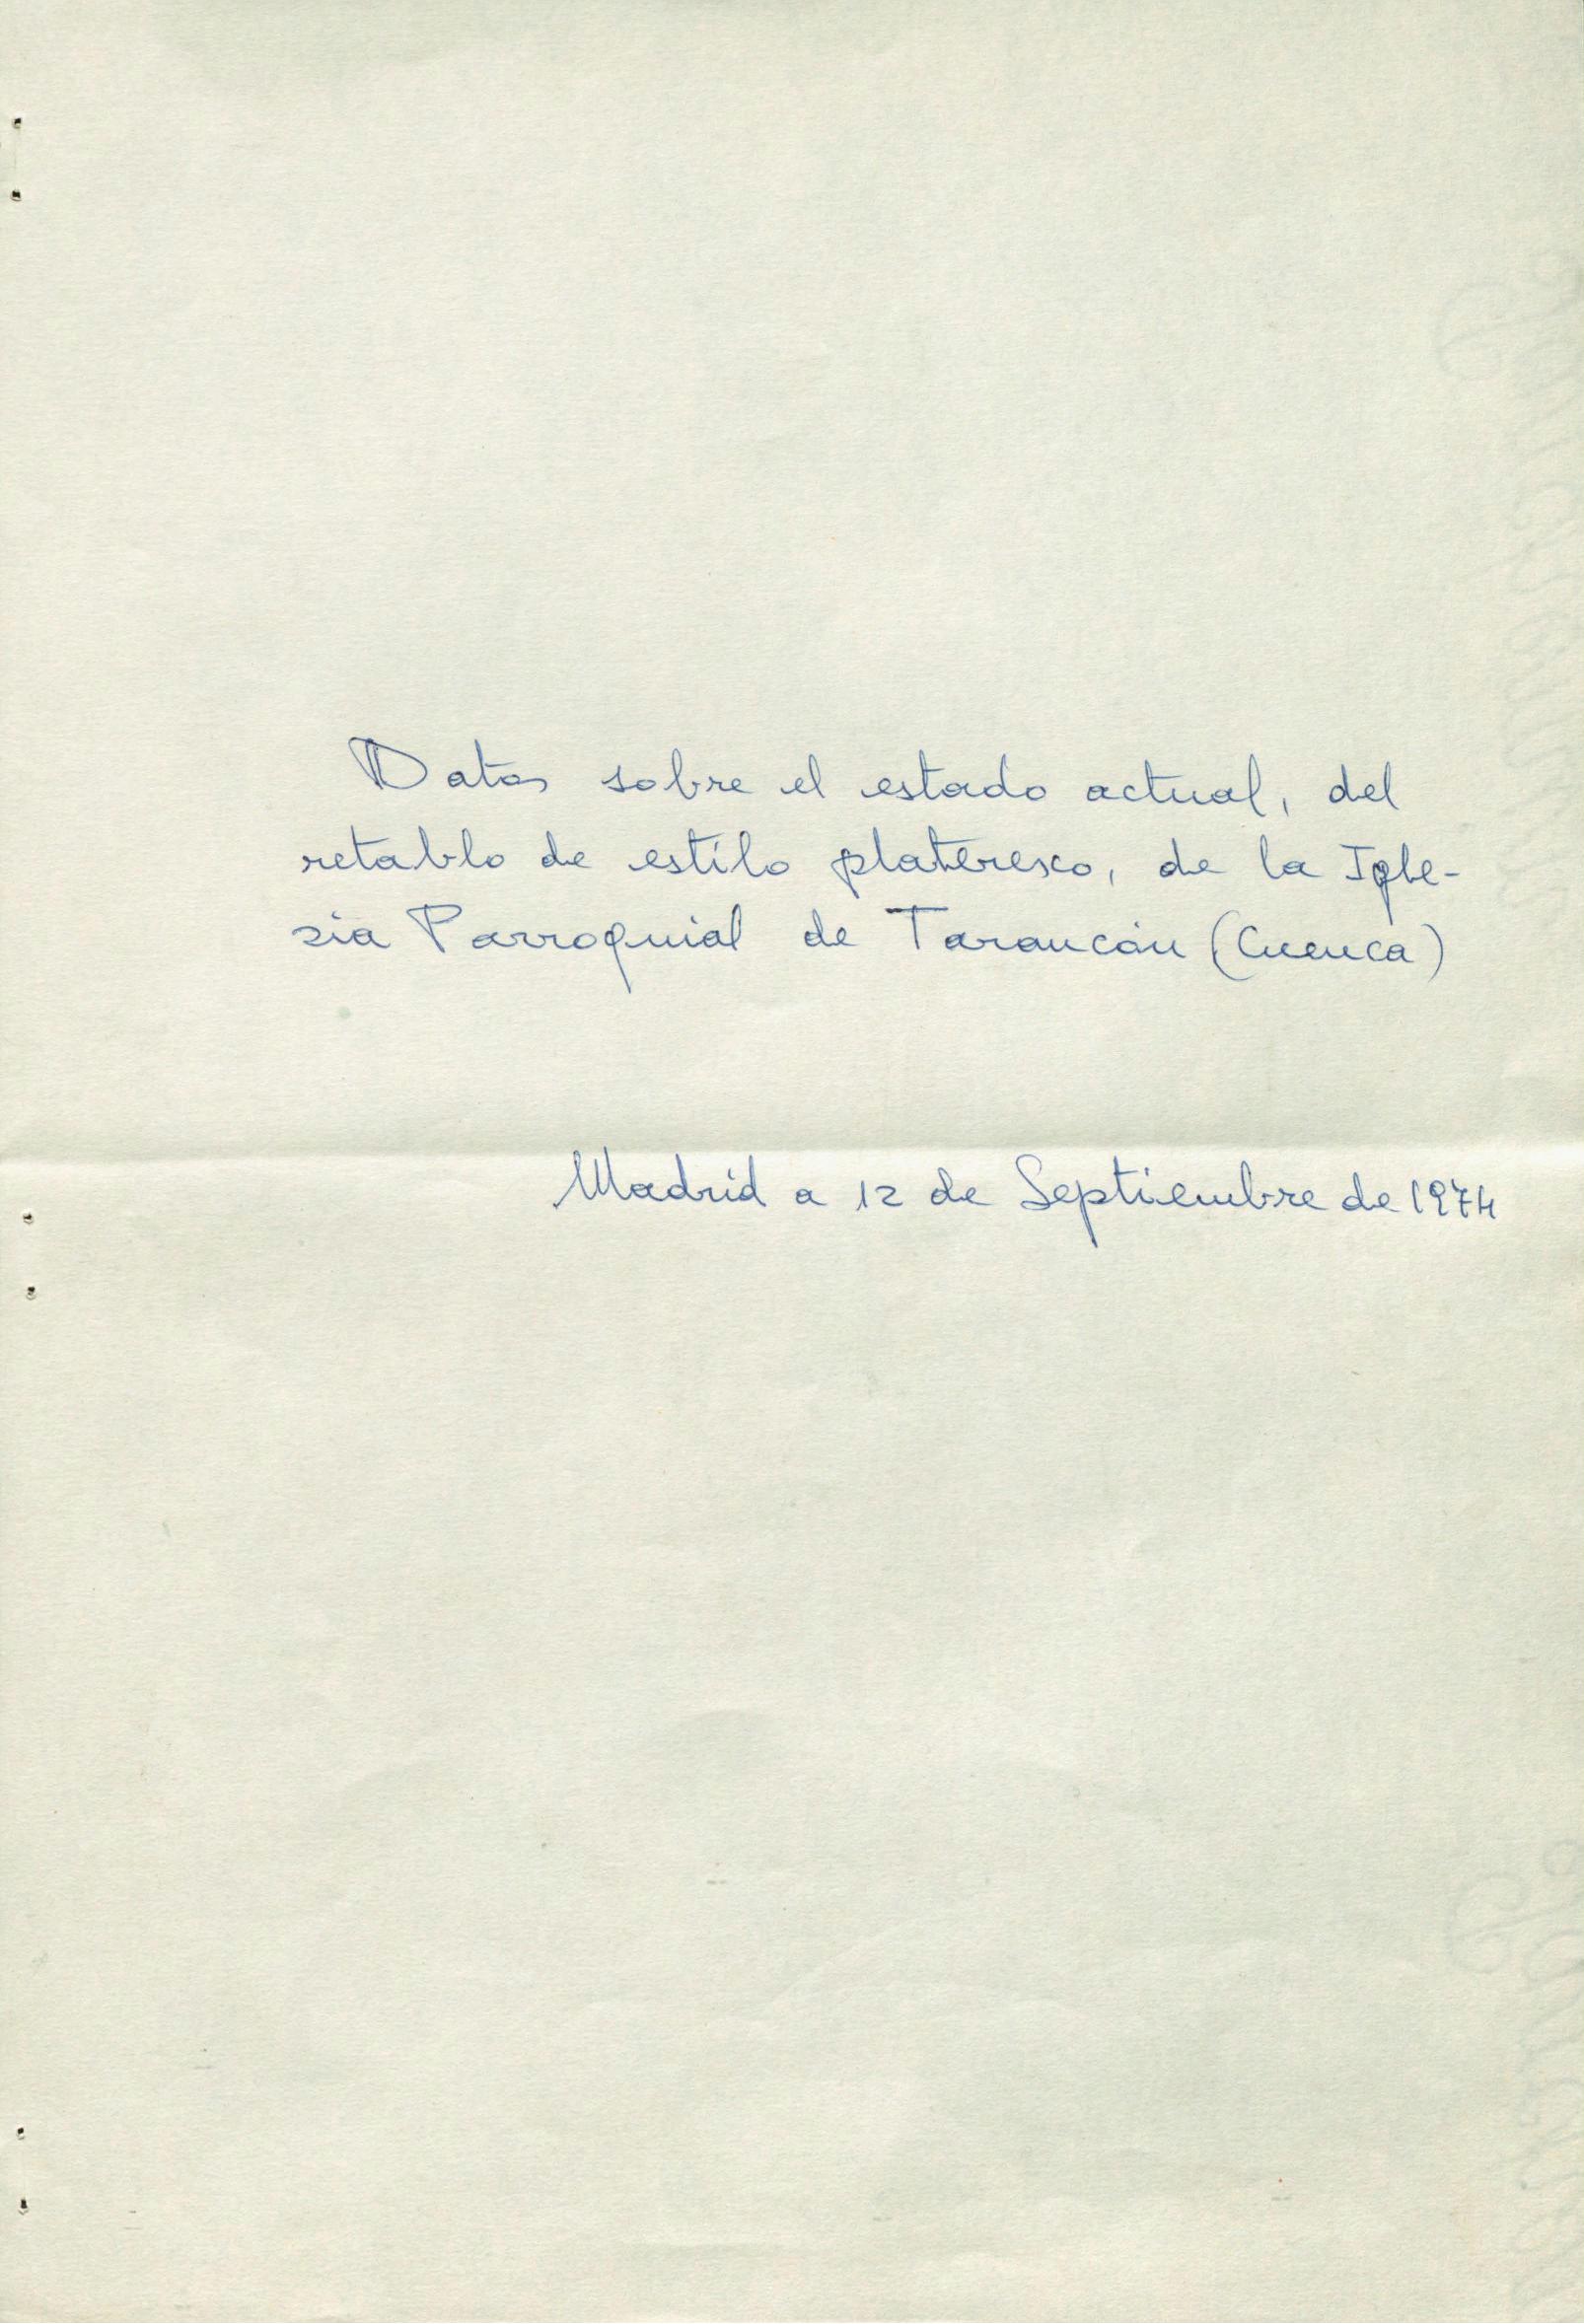 Datos sobre el estado actual, del
retablo de estilo plateresco, de la Igle-
sia Parroquial de Tarancón (Cuenca)
Madrid a 12 de Septiembre de 1974